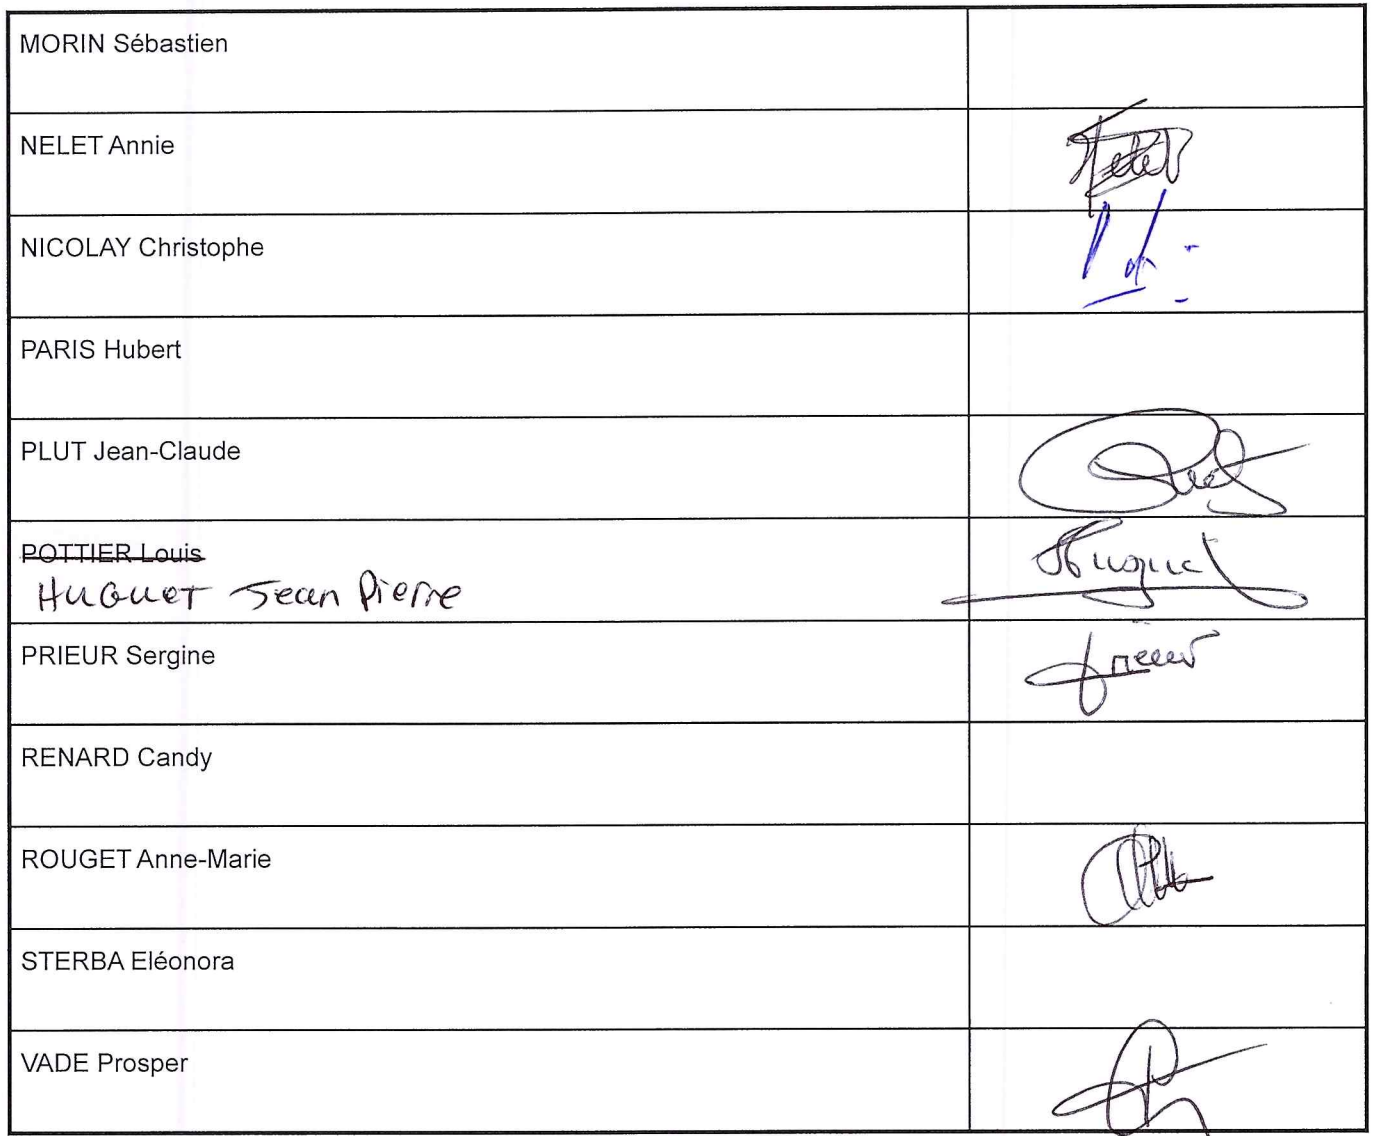 MORIN Sébastien
NELET Annie
NICOLAY Christophe
PARIS Hubert
PLUT Jean-Claude
POTTIER Louis
HUGUET Jean Pierre
Huguet
PRIEUR Sergine
RENARD Candy
ROUGET Anne-Marie
STERBA Eléonora
VADE Prosper